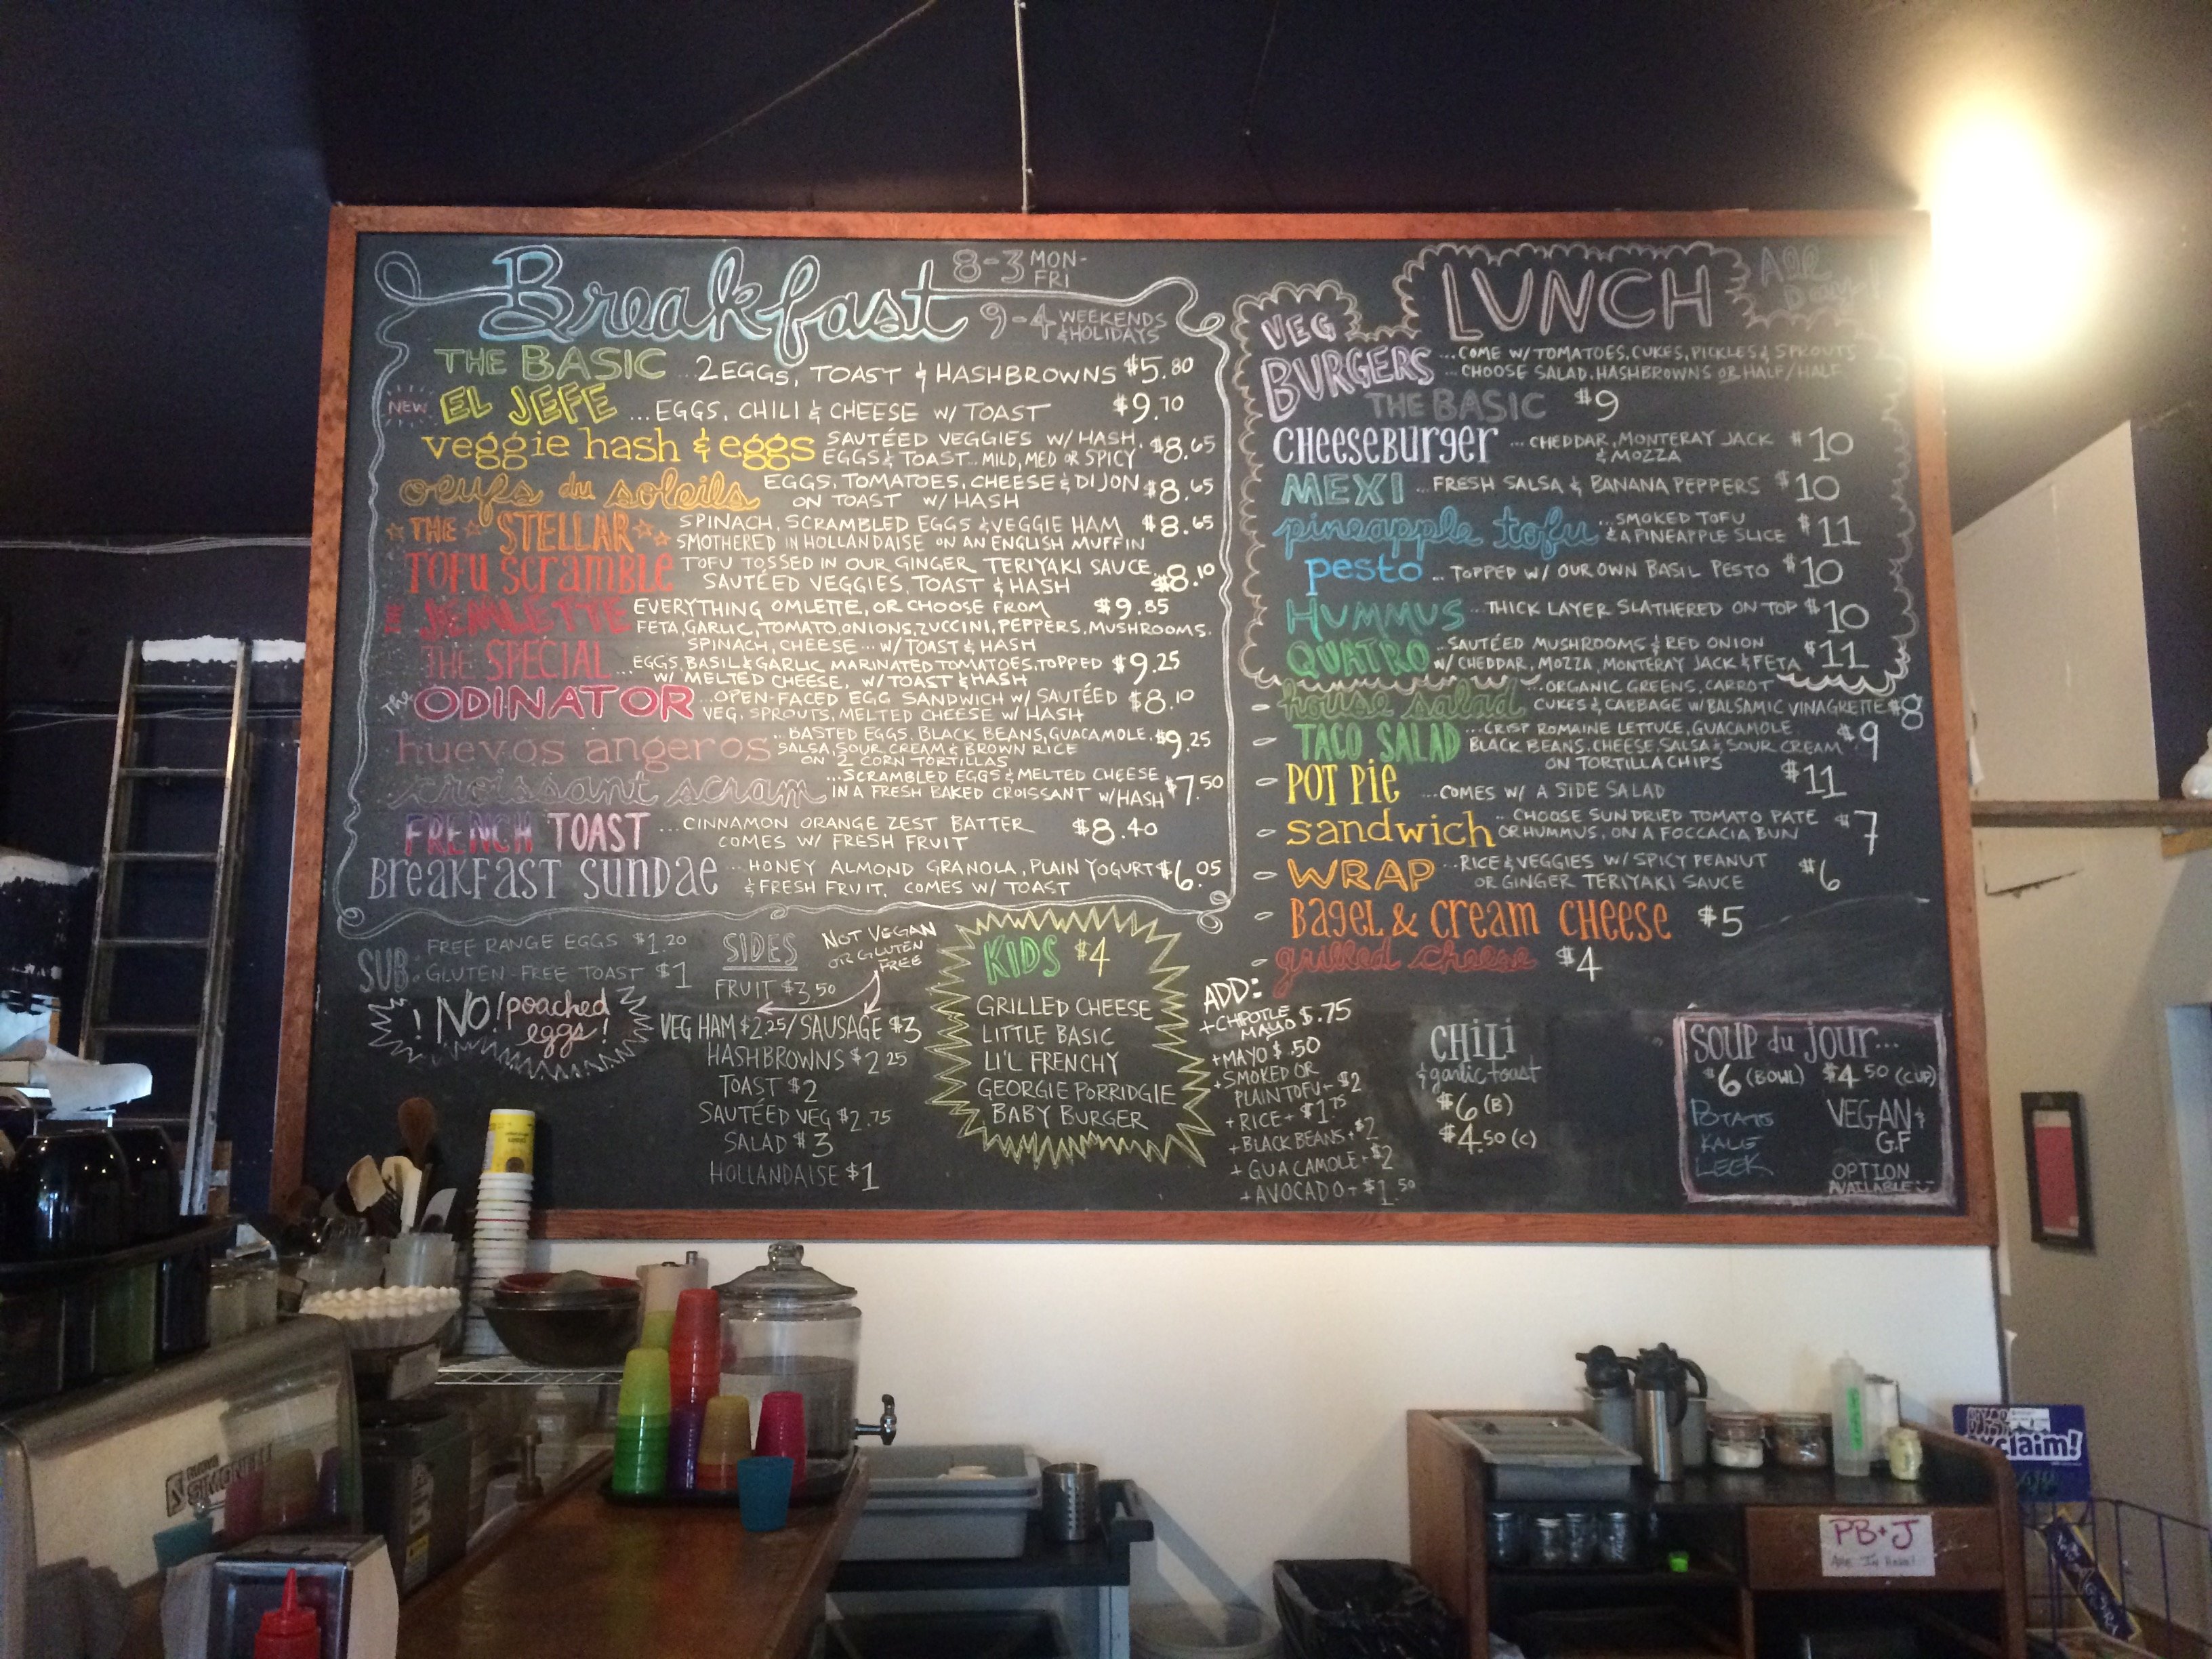 Breakfast 8-3 MON-FRI
9-4 WEEKENDS & HOLIDAYS
THE BASIC ...2 EGGS, TOAST & HASHBROWNS $5.80
NEW EL JEFE ...EGGS, CHILI & CHEESE W/ TOAST $9.70
veggie hash & eggs SAUTÉED VEGGIES W/ HASH, $8.65
EGGS & TOAST... MILD, MED OR SPICY
oeufs du soleils EGGS, TOMATOES, CHEESE & DIJON $8.65
ON TOAST W/ HASH
THE STELLAR SPINACH, SCRAMBLED EGGS & VEGGIE HAM $8.65
SMOTHERED IN HOLLANDAISE ON AN ENGLISH MUFFIN
TOFU SCRAMBLE TOFU TOSSED IN OUR GINGER TERIYAKI SAUCE, $8.10
SAUTÉED VEGGIES, TOAST & HASH
THE JEMLETTE EVERYTHING OMLETTE, OR CHOOSE FROM $9.85
FETA, GARLIC, TOMATO, ONIONS, ZUCCINI, PEPPERS, MUSHROOMS,
SPINACH, CHEESE... W/ TOAST & HASH
THE SPECIAL ...EGGS, BASIL & GARLIC MARINATED TOMATOES, TOPPED $9.25
W/ MELTED CHEESE, W/ TOAST & HASH
The ODINATOR ...OPEN-FACED EGG SANDWICH W/ SAUTÉED $8.10
VEG, SPROUTS, MELTED CHEESE W/ HASH
huevos angeros ...BASTED EGGS, BLACK BEANS, GUACAMOLE, $9.25
SALSA, SOUR CREAM & BROWN RICE
ON 2 CORN TORTILLAS
croissant scram ...SCRAMBLED EGGS & MELTED CHEESE
IN A FRESH BAKED CROISSANT W/ HASH $7.50
FRENCH TOAST ...CINNAMON ORANGE ZEST BATTER $8.40
COMES W/ FRESH FRUIT
BREAKFAST SUNDAE ...HONEY ALMOND GRANOLA, PLAIN YOGURT $6.05
& FRESH FRUIT, COMES W/ TOAST
SUB. FREE RANGE EGGS $1.20
GLUTEN-FREE TOAST $1
! NO! poached
eggs!
SIDES
NOT VEGAN
OR GLUTEN
FREE
FRUIT $3.50
VEG HAM $2.25/SAUSAGE $3
HASHBROWNS $2.25
TOAST $2
SAUTÉED VEG $2.75
SALAD $3
HOLLANDAISE $1
KIDS $4
GRILLED CHEESE
LITTLE BASIC
LI'L FRENCHY
GEORGIE PORRIDGIE
BABY BURGER
LUNCH All Day!
VEG
BURGERS ...COME W/ TOMATOES, CUKES, PICKLES & SPROUTS
...CHOOSE SALAD, HASHBROWNS OR HALF/HALF
THE BASIC $9
CHEESEBURGER ...CHEDDAR, MONTERAY JACK $10
& MOZZA
MEXI ...FRESH SALSA & BANANA PEPPERS $10
pineapple tofu ...SMOKED TOFU
& A PINEAPPLE SLICE $11
pesto ...TOPPED W/ OUR OWN BASIL PESTO $10
HUMMUS ...THICK LAYER SLATHERED ON TOP $10
QUATRO ...SAUTÉED MUSHROOMS & RED ONION $11
W/ CHEDDAR, MOZZA, MONTERAY JACK & FETA
- house salad ...ORGANIC GREENS, CARROT
CUKES & CABBAGE W/ BALSAMIC VINAGRETTE $8
- TACO SALAD ...CRISP ROMAINE LETTUCE, GUACAMOLE, $9
BLACK BEANS, CHEESE, SALSA & SOUR CREAM
ON TORTILLA CHIPS
- POT PIE ...COMES W/ A SIDE SALAD $11
- sandwich ...CHOOSE SUNDRIED TOMATO PATE $7
OR HUMMUS, ON A FOCCACIA BUN
- WRAP ...RICE & VEGGIES W/ SPICY PEANUT $6
OR GINGER TERIYAKI SAUCE
- BAGEL & CREAM CHEESE $5
- grilled cheese $4
ADD:
+ CHIPOTLE MAYO $.75
+ MAYO $.50
+ SMOKED OR
PLAIN TOFU - $2
+ RICE - $1.75
+ BLACK BEANS - $2
+ GUACAMOLE - $2
+ AVOCADO - $1.50
CHILI
& garlic toast
$6 (B)
$4.50 (C)
SOUP du JOUR...
$6 (BOWL) $4.50 (CUP)
POTATO
KALE
LEEK
VEGAN &
G.F
OPTION
AVAILABLE
SIMONELLI
exclaim!
PB+J